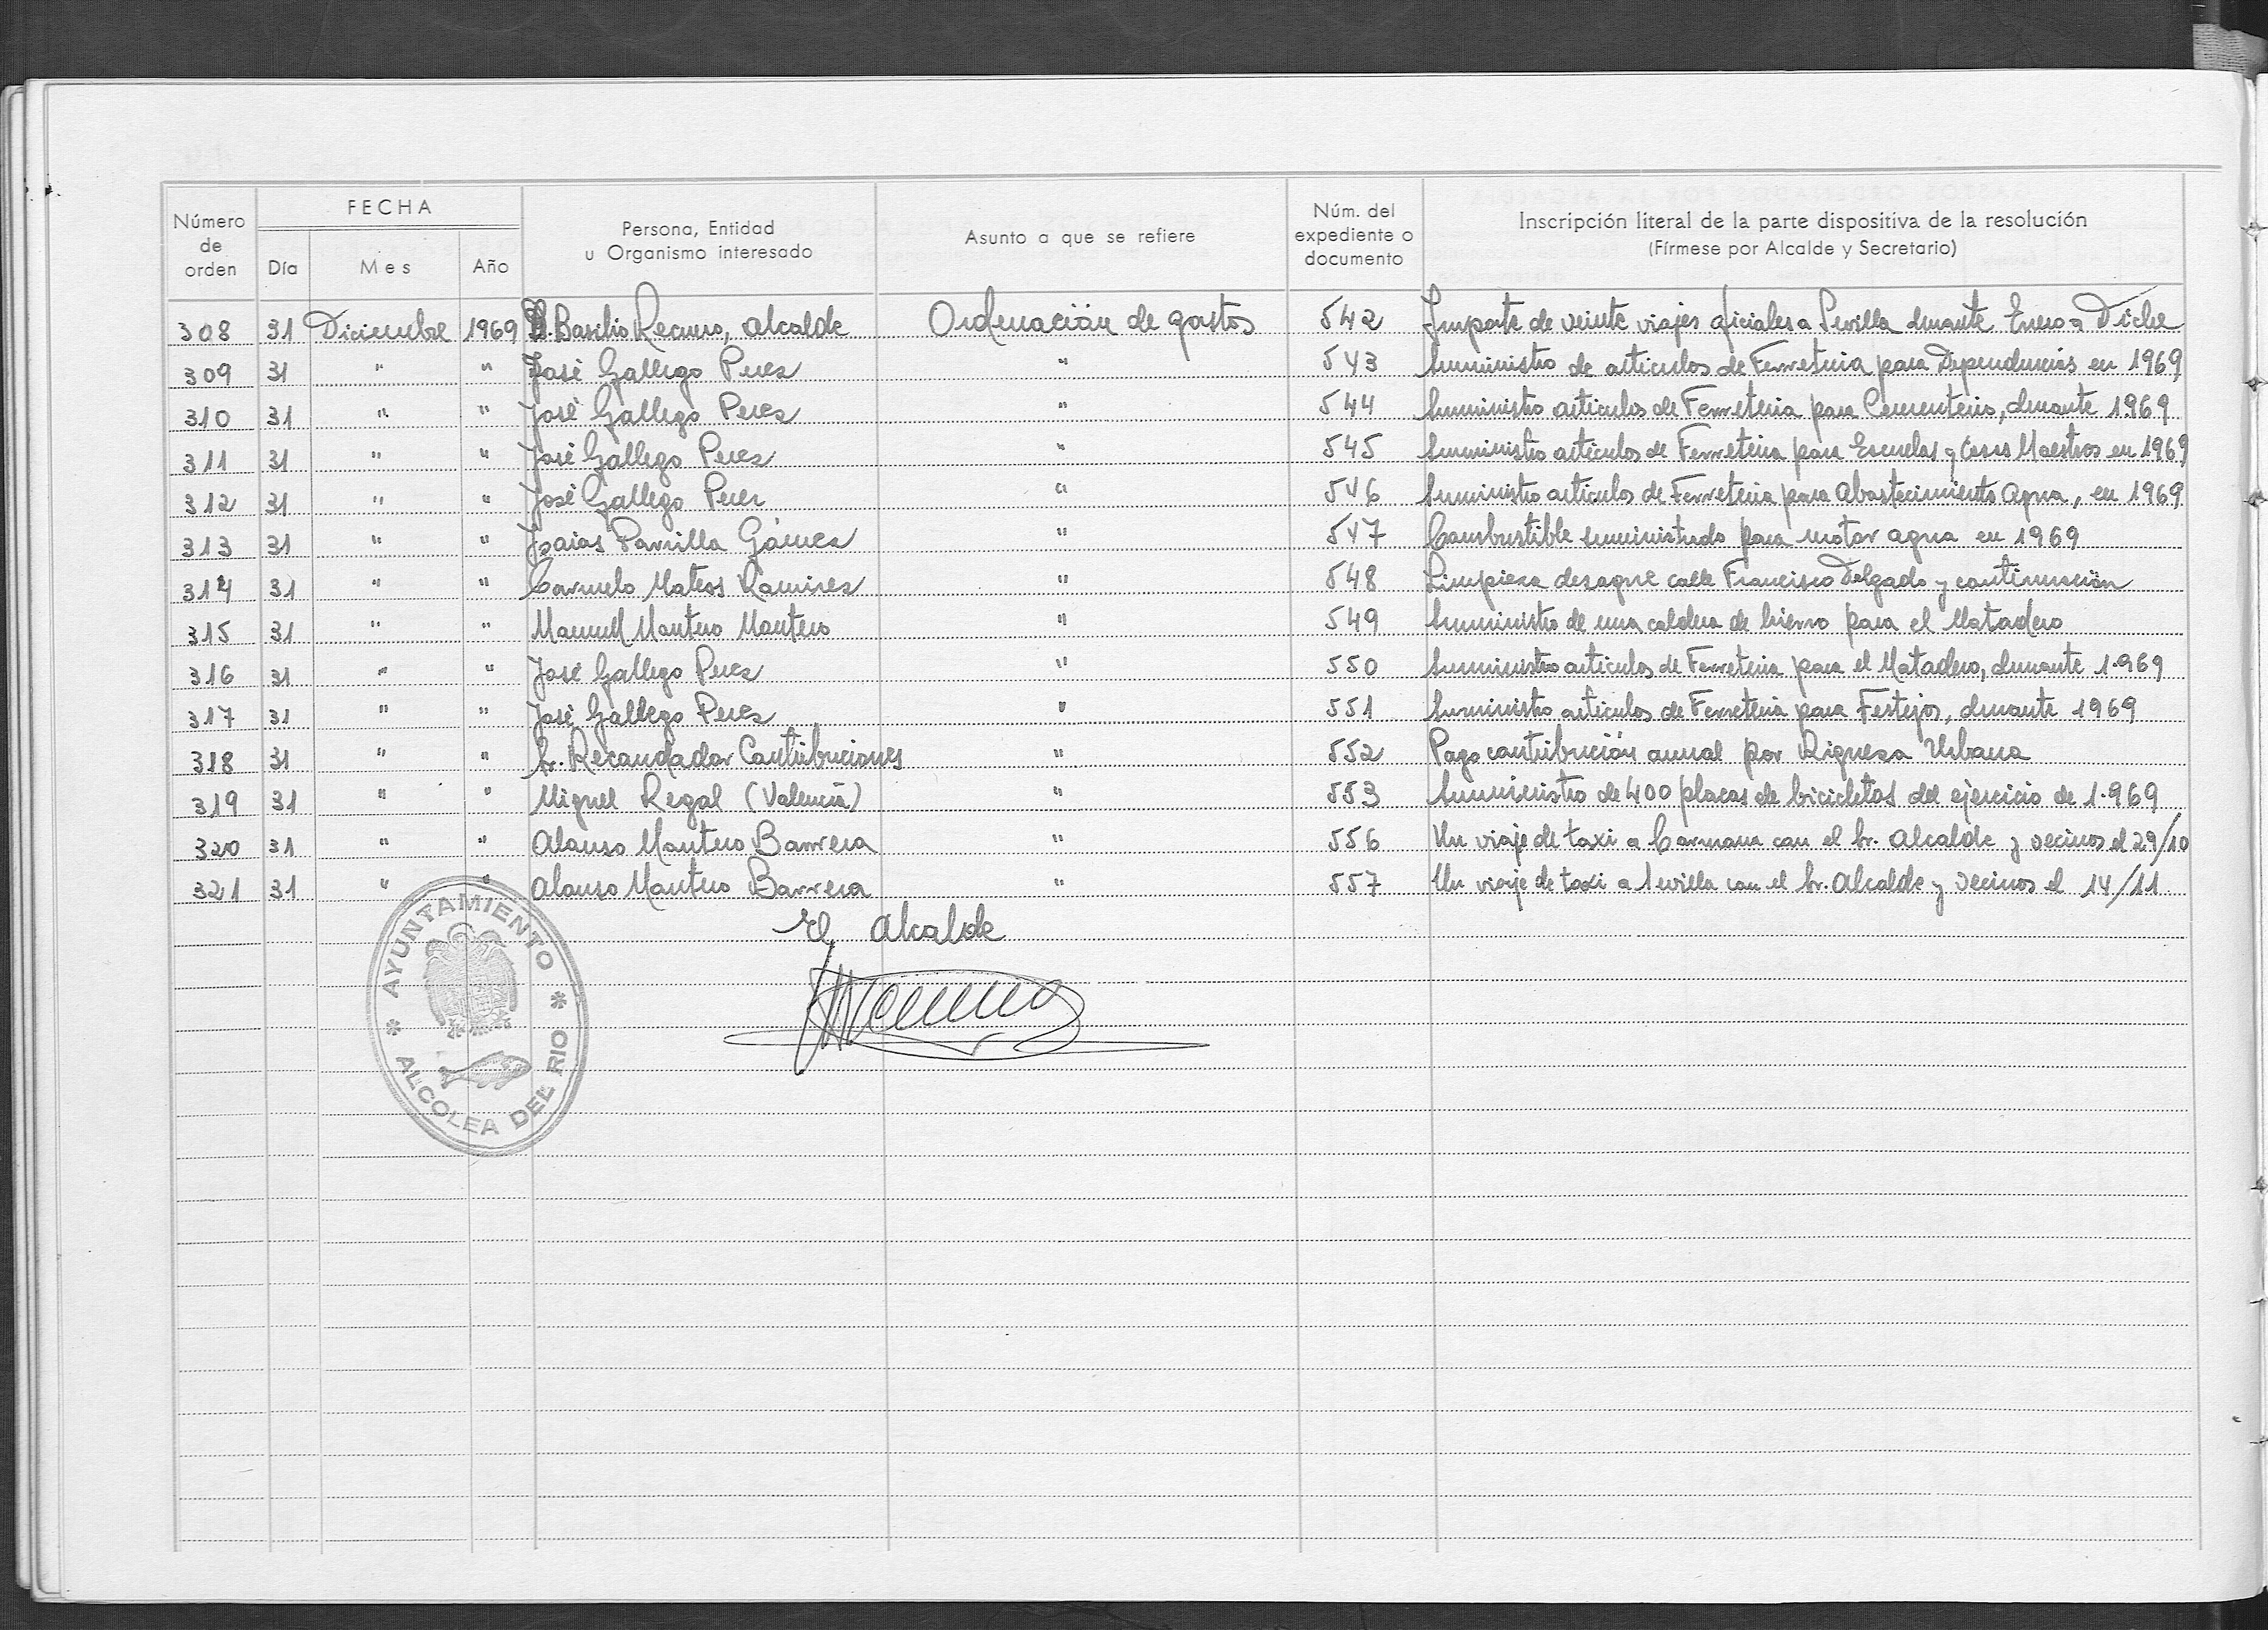 Número de orden | FECHA | Persona, Entidad u Organismo interesado | Asunto a que se refiere | Núm. del expediente o documento | Inscripción literal de la parte dispositiva de la resolución (Fírmese por Alcalde y Secretario)
Día | Mes | Año
308 31 Diciembre 1969 D. Basilio Recuero, Alcalde Ordenación de gastos 542 Importe de veinte viajes oficiales a Sevilla durante Enero a Dicbe
309 31 " " José Gallego Perez " 543 Suministro de articulos de Ferreteria para Dependencias en 1969
310 31 " " José Gallego Perez " 544 Suministro articulos de Ferreteria para Cementerio, durante 1.969
311 31 " " José Gallego Perez " 545 Suministro articulos de Ferreteria para Escuelas y Casas Maestros en 1969
312 31 " " José Gallego Perez " 546 Suministro articulos de Ferreteria para Abastecimiento Agua, en 1969
313 31 " " Isaias Parrilla Gómez " 547 Combustible suministrado para motor agua en 1969
314 31 " " Carmelo Mateos Ramirez " 548 Limpieza desague calle Francisco Delgado y continuación
315 31 " " Manuel Montero Montero " 549 Suministro de una caldera de hierro para el Matadero
316 31 " " José Gallego Perez " 550 Suministro articulos de Ferreteria para el Matadero, durante 1.969
317 31 " " José Gallego Perez " 551 Suministro articulos de Ferreteria para Festejos, durante 1969
318 31 " " Sr. Recaudador Contribuciones " 552 Pago contribución anual por Riqueza Urbana
319 31 " " Miguel Regal (Valencia) " 553 Suministro de 400 placas de bicicletas del ejercicio de 1.969
320 31 " " Alonso Montero Barrera " 556 Un viaje de taxi a Carmona con el Sr. Alcalde y vecinos el 29/10
321 31 " " Alonso Montero Barrera " 557 Un viaje de taxi a Sevilla con el Sr. Alcalde y vecinos el 14/11
El Alcalde
* AYUNTAMIENTO *
ALCOLEA DEL RIO